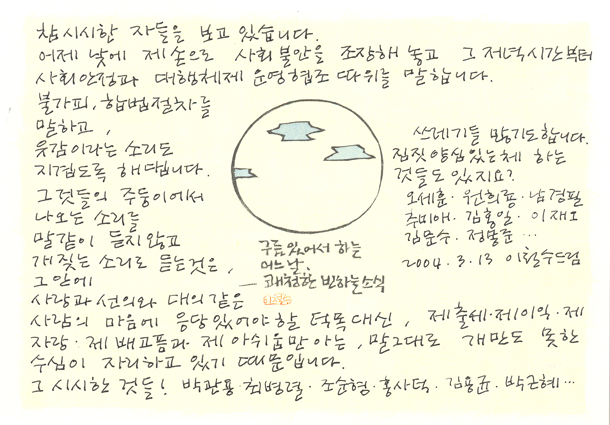 참 시시한 자들을 보고 있습니다.
어제 낮에 제 손으로 사회불안을 조장해 놓고 그 저녁시간부터
사회안정과 대행체제 운영협조 따위를 말합니다.
불가피, 합법절차를
말하고,
유감이라는 소리도
지겹도록 해댑니다.
그것들의 주둥이에서
나오는 소리를
말같이 듣지 않고
개 짖는 소리로 듣는것은,
그 안에
사랑과 선의와 대의 같은
사람의 마음에 응당 있어야 할 덕목 대신, 제 출세·제 이익·제
자랑·제 배고픔과 제 아쉬움만 아는, 말 그대로 개만도 못한
수심이 자리하고 있기 때문입니다.
그 시시한 것들! 박관용·최병렬·조순형·홍사덕·김용균·박근혜…
쓰레기들 많기도 합니다.
짐짓 양심 있는 체 하는
것들도 있지요?
오세훈·원희룡·남경필
추미애·김홍일·이재오
김문수·정몽준…
2004.3.13 이철수 드림
구름 있어서 하는
어느 날.
— 쾌청한 빈 하늘 소식